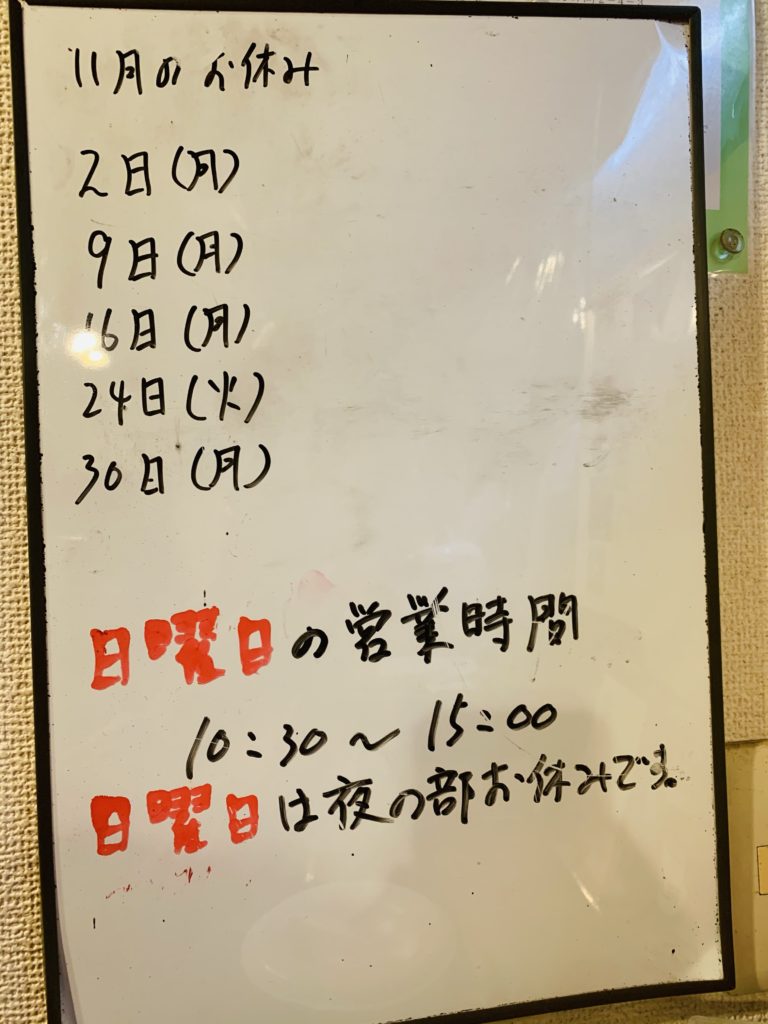 11月のお休み
2日(月)
9日(月)
16日(月)
24日(火)
30日(月)
日曜日の営業時間
10:30～15:00
日曜日は夜の部お休みです。